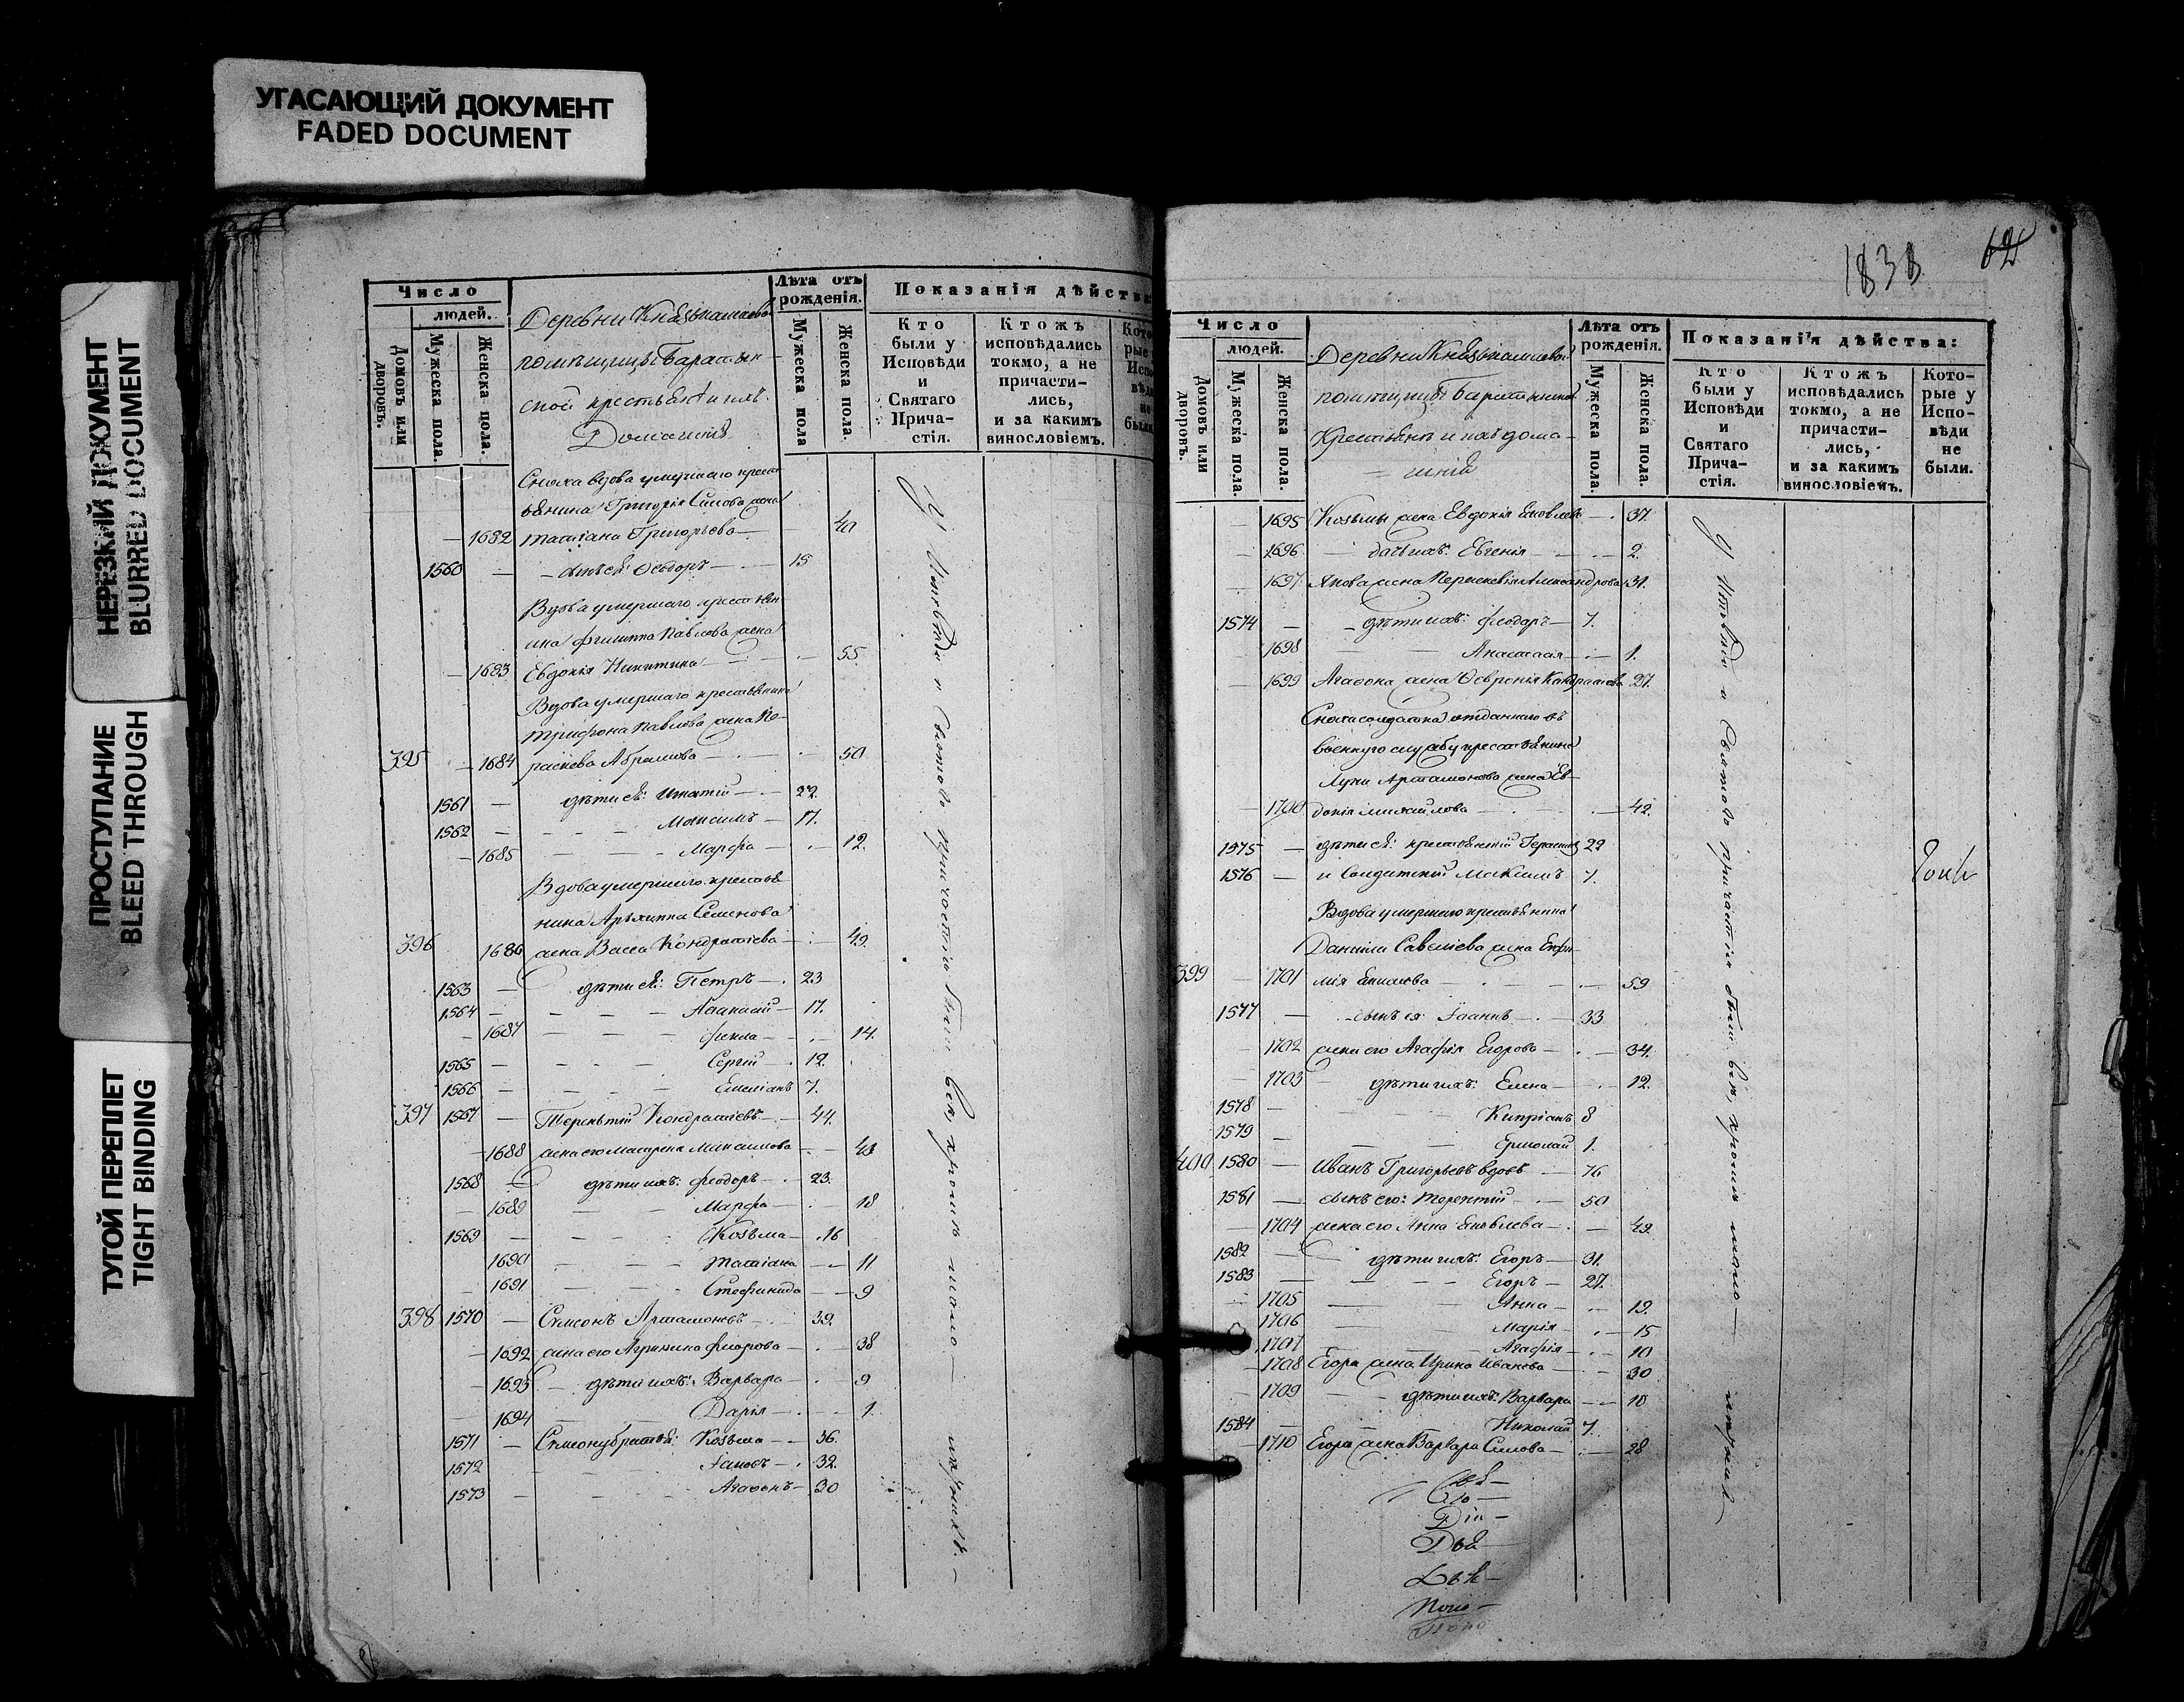 УГАСАЮЩИЙ ДОКУМЕНТ
FADED DOCUMENT
НЕРЕЗКИЙ ДОКУМЕНТ
BLURRED DOCUMENT
ПРОСТУПАНИЕ
BLEED THROUGH
ТУГОЙ ПЕРЕПЛЕТ
TIGHT BINDING
Число
людей.
Домовъ или дворовъ.
Мужеска пола.
Женска пола.
Деревни
помѣщицы
крестьяне и ихъ
Домашніе
Лѣта отъ рожденія.
Мужеска пола
Женска пола.
Показанія дѣйства
Кто были у Исповѣди и Святаго Прича-стія.
Ктожъ исповѣдались токмо, а не причасти-лись, и за какимъ винословіемъ.
Сноха вдова умершаго кресть
янина Григорія Силова жена
1682 Татіана Григорьева — 40
1560 — сынъ ея Ѳеодоръ — 15
Вдова умершаго крестьян
ина Филиппа Павлова жена
1683 Евдокія Никитина — 55
Вдова умершаго крестьянина
Трифона Павлова жена Па-
395 — 1684 раскева Абрамова — 50
1561 — дѣти ея: Игнатій — 22.
1562 — Максимъ — 17.
1685 — Марфа — 12.
Вдова умершаго крестья
нина Архиппа Семенова
396 1686 жена Васса Кондратіева — 49.
1563 — дѣти ея: Петръ — 23
1564 — 17.
1687 — Фекла — 14.
1565 — Сергій — 12.
1566 — Емеліанъ 7.
397 1567 — Терентій Кондратіевъ — 44.
1688 жена его Матрена Максимова — 43
1568 — дѣти ихъ: Феодоръ — 23.
1689 — Марфа — 18
1569 — Козьма — 16
1690 — Татіана — 11
1691 — Стефанида — 9
398 1570 — Симонъ Артамоновъ — 39.
1692 жена его Агрипина — 38
1693 — дѣти ихъ: Варвара — 9
1694 — Дарія — 1.
1571 — Симону братья: Козьма — 36.
1572 — Іаковъ — 32.
1573 — Агафонъ — 30
У Исповѣди и Святаго причастія были всѣ, кромѣ мало —
1838
Число
людей.
Домовъ или дворовъ.
Мужеска пола.
Женска пола.
Деревни
помѣщицы
Крестьяне и ихъ дома-
— шніе
Лѣта отъ рожденія.
Мужеска пола.
Женска пола.
Показанія дѣйства:
Кто были у Исповѣди и Святаго Прича-стія.
Ктожъ исповѣдались токмо, а не причасти-лись, и за какимъ винословіемъ.
Кото-рые у Испо-вѣди не были.
1695 Козьмы жена Евдокія Яковлева — 37.
1696 — дочь ихъ: Евгенія — 2.
1697 Якова жена Параскевія Александрова 31.
1574 — дѣти ихъ: Феодоръ — 7.
1698 — Анастасія — 1.
1699 Агафона жена Ѳевронья Кондратіева 27.
Сноха солдатка отданнаго въ
военную службу крестьянина
Луки Артамонова жена Ев-
1700 докія Михайлова — 42.
1575 — дѣти ея: крестьянскій Герасимъ 22
1576 — и Солдатскій Максимъ 7.
Вдова умершаго крестьянина
Даниила Савеліева жена Евфи-
399 — 1701 мія — 59
1577 — сынъ ея Іоаннъ — 33
1702 жена его Агафія Егорова — 34.
1703 — дѣти ихъ: Елена — 12.
1578 — Кипріанъ 8
1579 — Ермолай 1.
400 1580 — Иванъ Григорьевъ вдовъ — 76
1581 — сынъ его: Терентій — 50
1704 жена его Анна Яковлева — 49.
1582 — дѣти ихъ: Егоръ — 31.
1583 — Егоръ — 27.
1705 — Анна — 19.
1706 — Марія — 15
1707 — Агафія — 10
1708 Егора жена Ирина Иванова — 30
1709 — дѣти ихъ: Варвара — 10
1584 — Николай 7.
1710 Егора жена Варвара Силова — 28
У Исповѣди и Святаго причастія были всѣ, кромѣ мало —